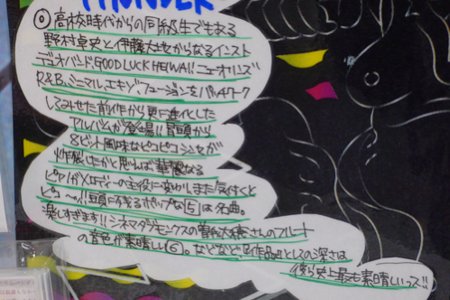 THUNDER
◎高校時代からの同級生でもある
野村卓史と伊藤大地からなるインスト
デュオバンド、GOOD LUCK HEIWA!! ニューオリンズ
R&B、ミニマル、エキゾ、フュージョンをパッチワーク
しるみせた前作から更に進化した
アルバムが登場!! 冒頭から
8ビット風味なピコピコシンセが
炸裂したかと思えば華麗なる
ピアノがメロディーの主役に変わりまた気付くと
ピコ〜ッ!! 頭に残るポップな⑤は名曲。
楽しすぎます!! シネマダブモンクスの
さんのフルート
の音色が素晴しい⑥。などなど、作品としての深さは
史上最も素晴しいっス!!